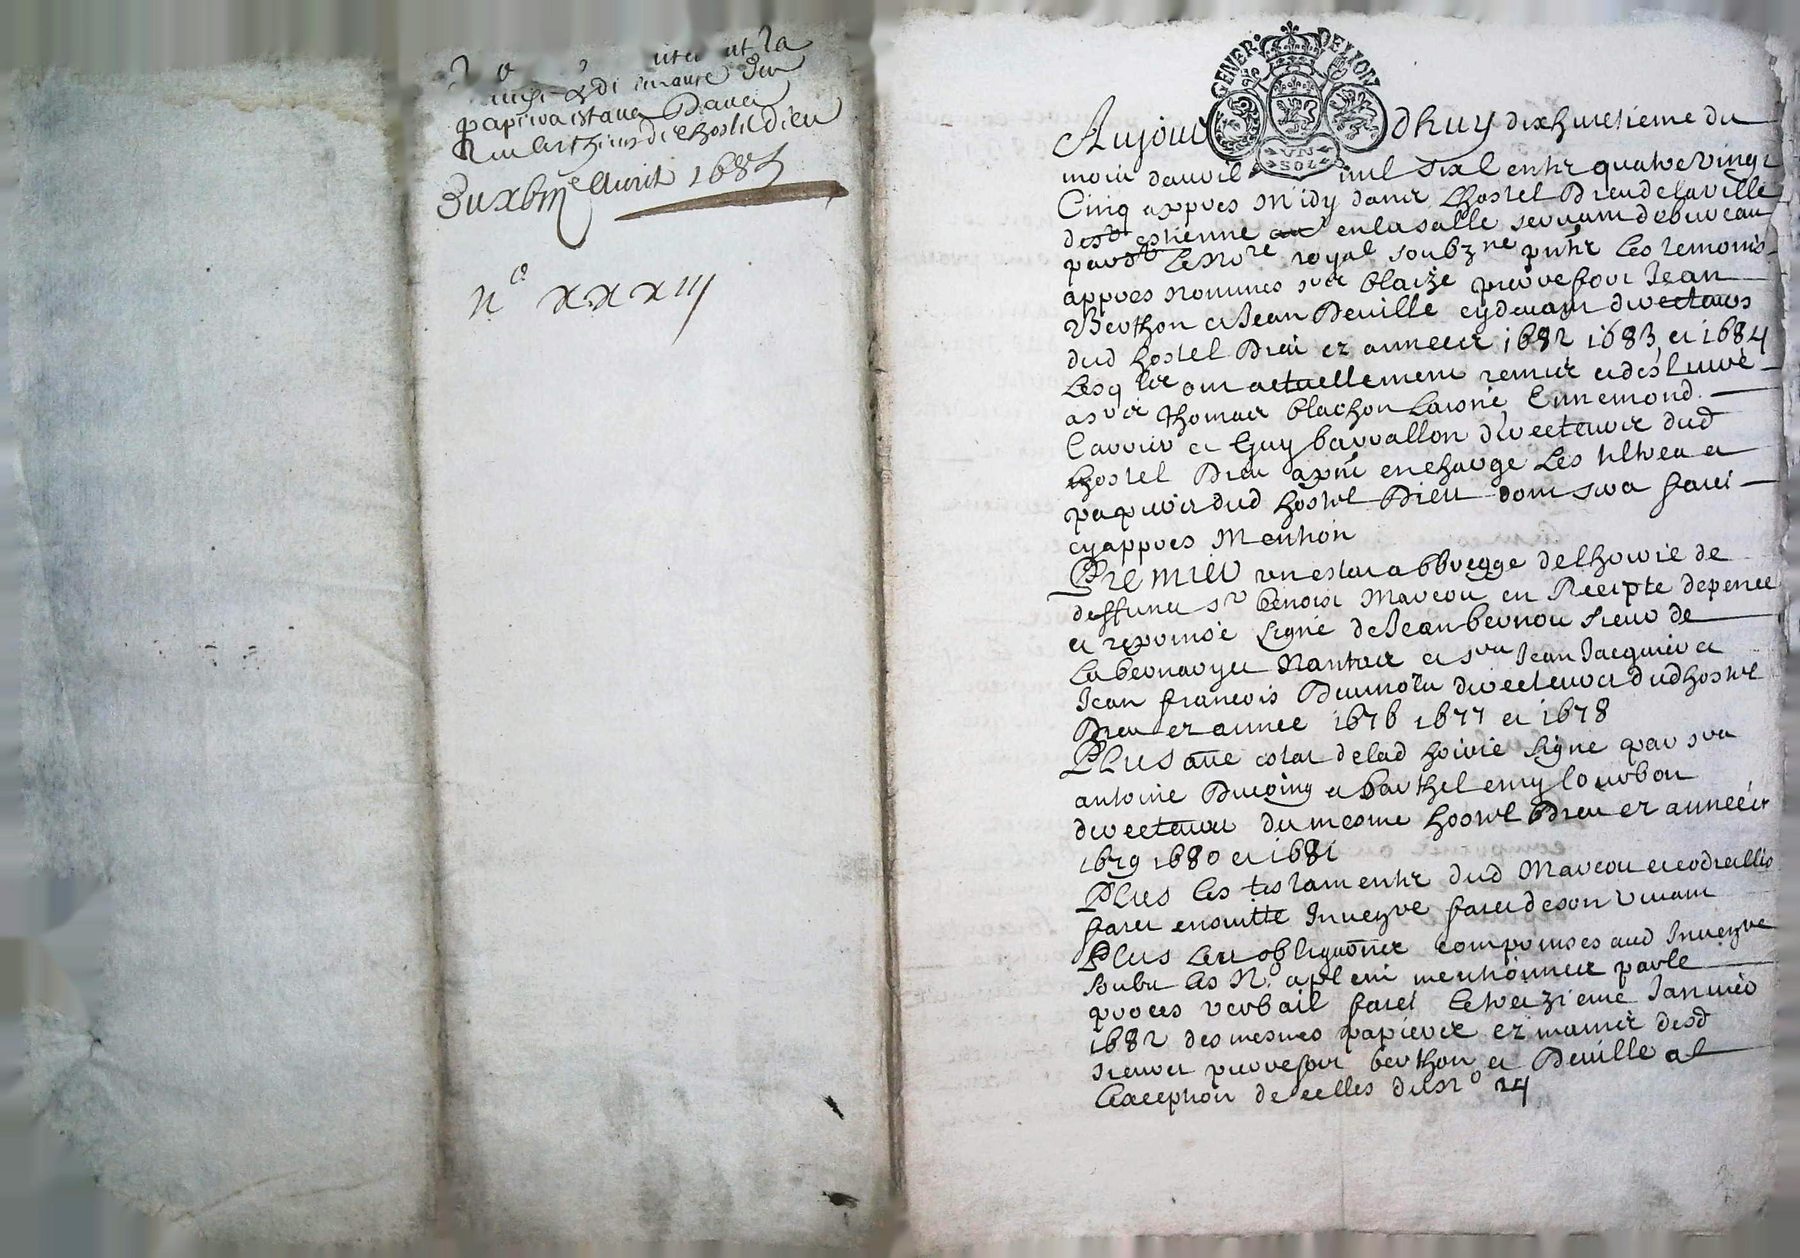 papiers estans Dans
Les Archives de lhostel dieu
Du xbiii.e Avril 1685
n.o xxxiij
GENER. DE LION
UN
SOL
Aujourdhuy dixhuictieme du
mois davril mil sixcentz quatre vingt
Cinq appres midy dans Lhostel Dieu de la ville
de st estienne en la salle servant de bureau
pard.t Le no.re royal soubz.ne pnts les temoins
appres nommes s.rs blaize prevesson Jean
Berthon et Jean Deville cydevant directeurs
dud hostel Dieu ez annees 1682 1683 et 1684
Lesq.ls ont actuellement remis et deslivré
a s.rs thomas blachon Laisné Ennemond
Carrier et Guy barrallon directeurs dud
hostel Dieu apnt en charge Les tiltres et
papiers dud hostel Dieu dont sera faict
cy appres mention
Premier un estat abbregge de lhoirie de
deffunct s.r benoist Marcou en Recepte depence
et reprinse signé de Jean bernou sieur de
La bernarye Nantas et s.rs Jean Jacquier et
Jean françois directeurs dud hostel
Dieu ez annee 1676 1677 et 1678
Plus aut.e estat de lad hoirie signe par s.rs
antoine Ducoing et barthelemy lourbon
directeurs du mesme hostel Dieu ez annees
1679 1680 et 1681
Plus Les testamentz dud Marcou et codicilles
faict ensuitte Inventre faict de son vivant
Plus Les obligaōnes comprinses aud Inventre
soubz Les N.o a plein mentionnees par le
proces verbail faict Le treizieme Janvier
1682 des mesmes papiers ez mains desd
sieurs prevesson berthon et Deville a l
Exception de celles du N.o 24